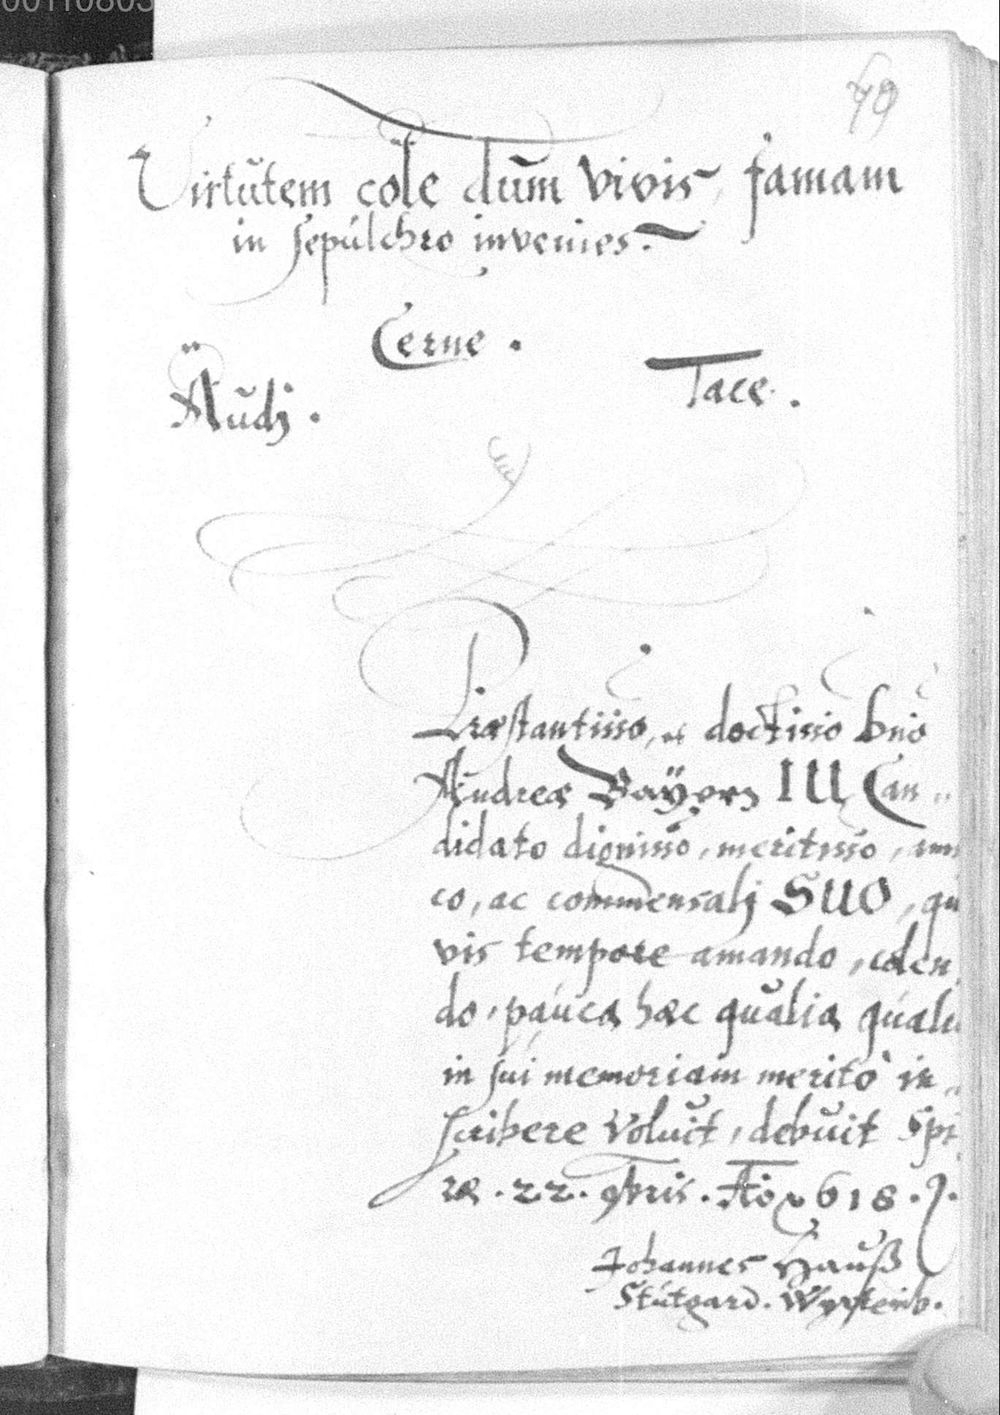 79
Virtutem cole dum vivis, famam
in sepulchro invenies.
Cerne.
Audj. Tace.
Præstantisso, et doctisso Dno
Andreæ Bayern IU Can„
didato dignisso, meritisso, ami
co, ac commensalj SUO, qu
vis tempore amando, colen„
do, pauca hæc qualia qualia
in sui memoriam meritò in„
scribere voluit, debuit Spi
ræ. 22. 9bris. Ao 618.
Johannes Hauß
Stutgard. Wyrtemb.